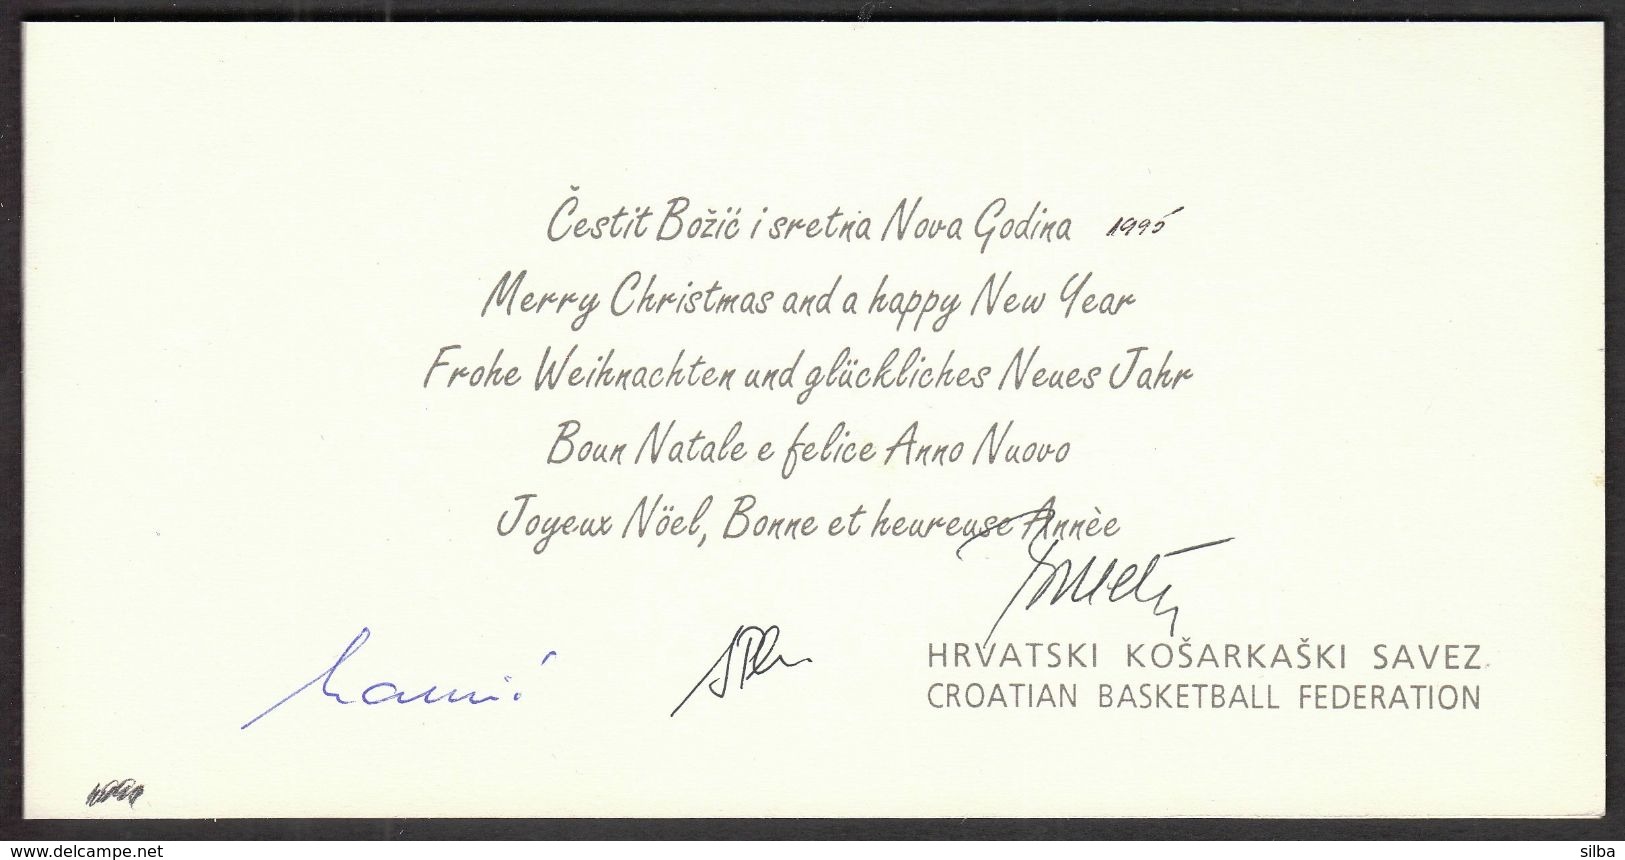 Čestit Božić i sretna Nova Godina 1995
Merry Christmas and a happy New Year
Frohe Weihnachten und glückliches Neues Jahr
Boun Natale e felice Anno Nuovo
Joyeux Nöel, Bonne et heureuse Annèe
HRVATSKI KOŠARKAŠKI SAVEZ
CROATIAN BASKETBALL FEDERATION
www.delcampe.net
silba